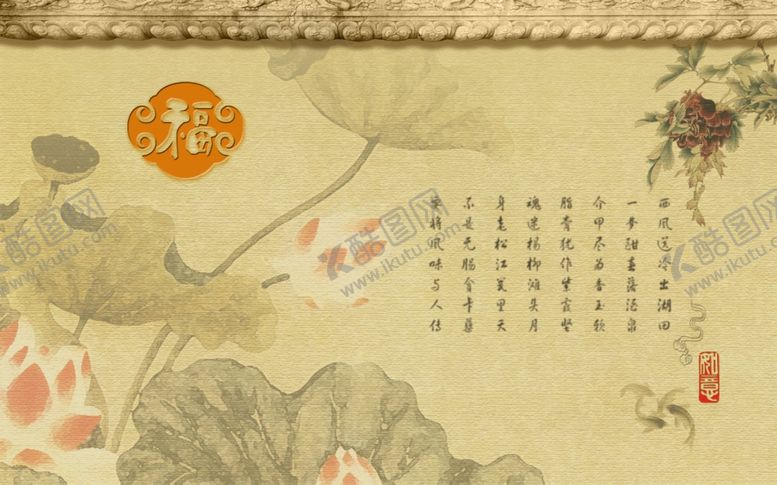 福
西风送冷出湖田
一梦酣春落酒泉
介甲尽为香玉软
脂膏犹作紫霞坚
魂迷杨柳滩头月
身老松江瓮里天
不是无肠贪
将风味与人传
如意
酷图网
www.ikutu.com